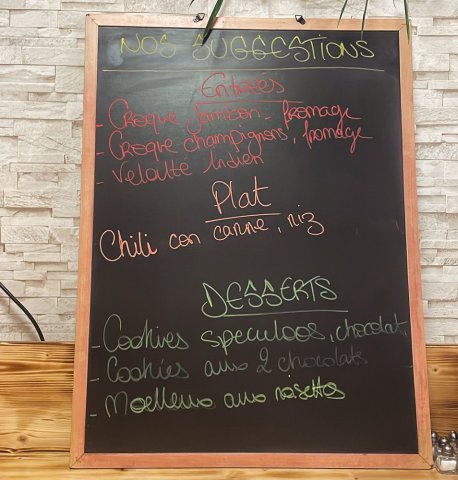 NOS SUGGESTIONS
Entrées
- Croque jambon - fromage
- Croque champignons, fromage
- Velouté Indien
Plat
Chili con carne, riz
DESSERTS
- Cookies speculoos, chocolat,
- Cookies aux 2 chocolats
- Moelleux aux noisettes